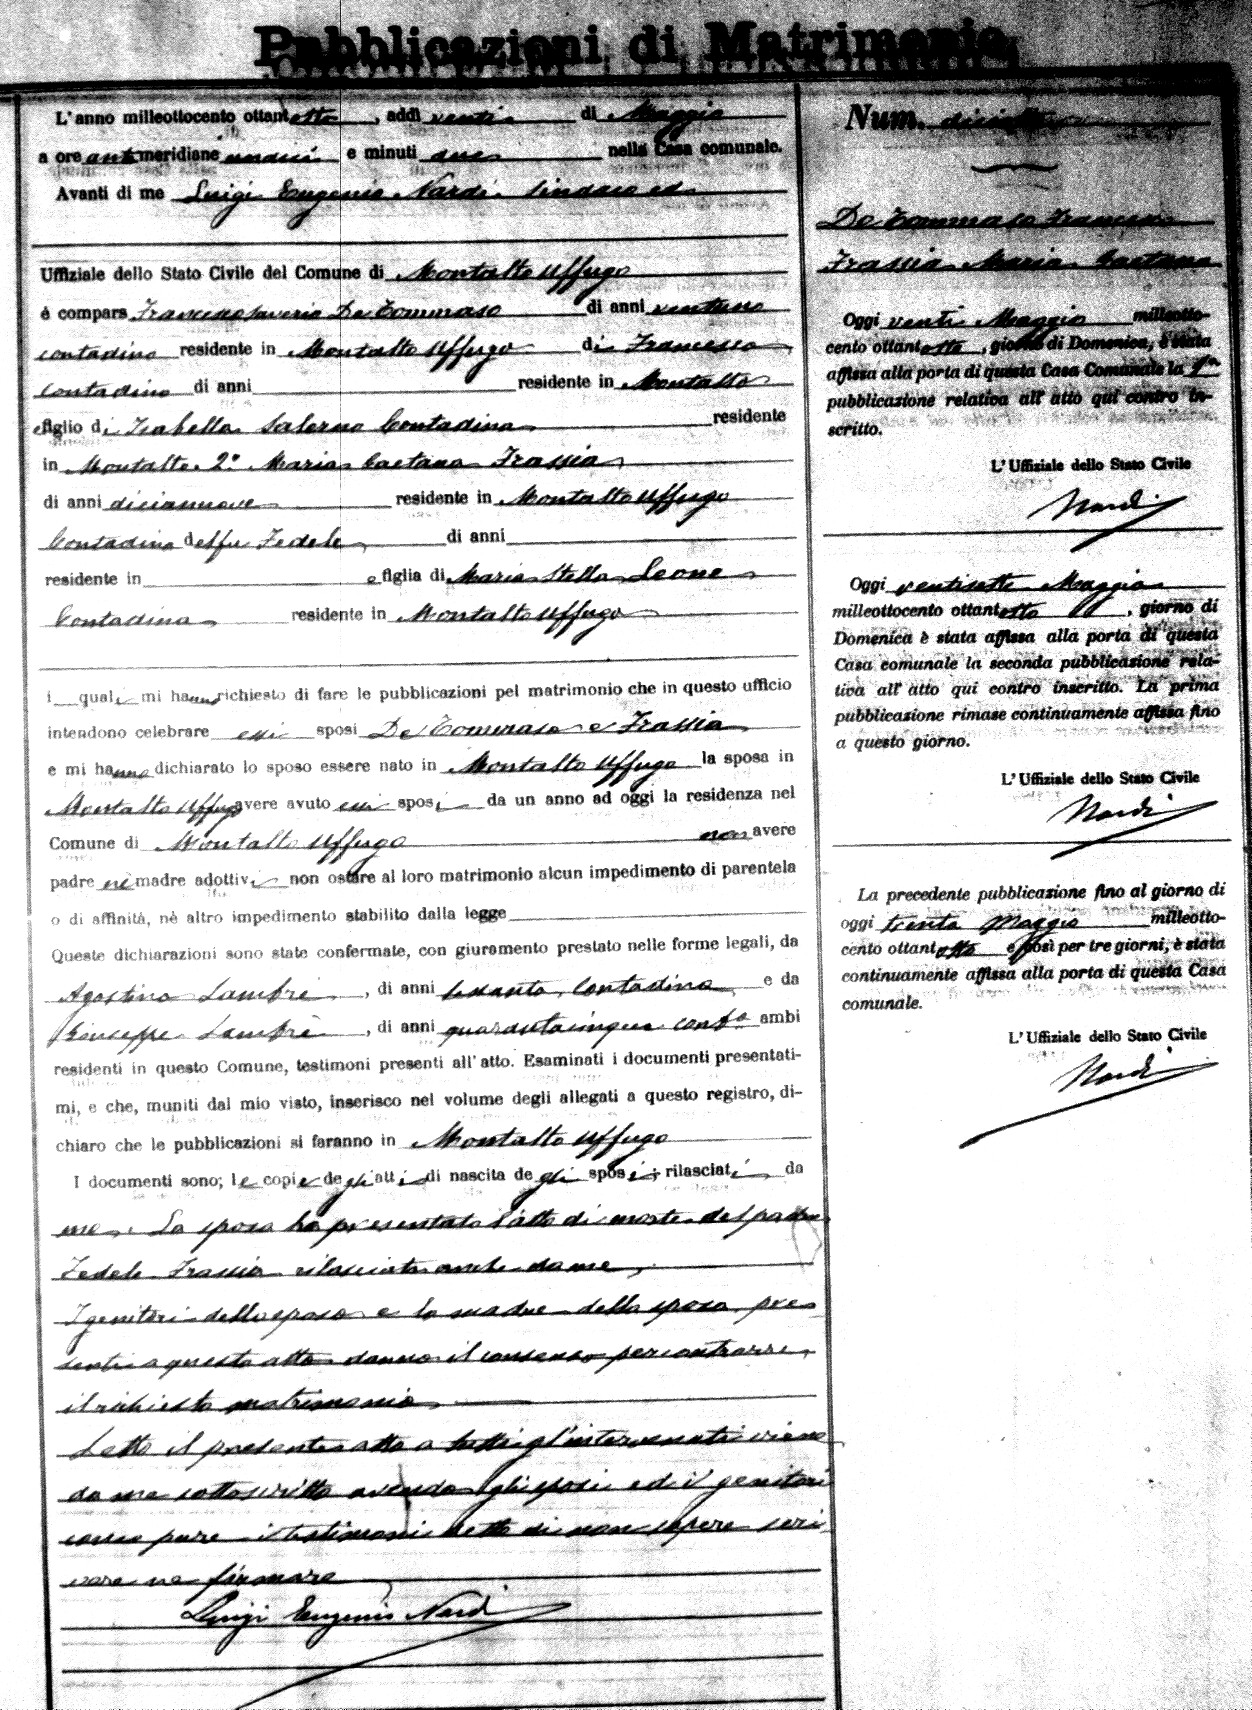 Pubblicazioni di Matrimonio
L'anno milleottocento ottantotto, addì venti di Maggio
a ore antimeridiane undici e minuti due nella Casa comunale.
Avanti di me Luigi Eugenio Nardi Sindaco ed
Uffiziale dello Stato Civile del Comune di Montalto Uffugo
è compars Francesco Saverio De Tommaso di anni ventuno
contadino residente in Montalto Uffugo di Francesco
contadino di anni residente in Montalto
e figlio di Isabella Salerno Contadina residente
in Montalto. 2° Maria Gaetana Frassia
di anni diciannove residente in Montalto Uffugo
Contadina del fu Fedele di anni
residente in e figlia di Maria Stella Leone
Contadina residente in Montalto Uffugo
i quali mi hanno richiesto di fare le pubblicazioni pel matrimonio che in questo ufficio
intendono celebrare essi sposi De Tommaso e Frassia
e mi hanno dichiarato lo sposo essere nato in Montalto Uffugo la sposa in
Montalto Uffugo avere avuto essi sposi da un anno ad oggi la residenza nel
Comune di Montalto Uffugo non avere
padre nè madre adottivi non ostare al loro matrimonio alcun impedimento di parentela
o di affinità, nè altro impedimento stabilito dalla legge
Queste dichiarazioni sono state confermate, con giuramento prestato nelle forme legali, da
Agostino Lambrè, di anni contadino e da
Giuseppe Lambrè, di anni quarantacinque cont° ambi
residenti in questo Comune, testimoni presenti all'atto. Esaminati i documenti presentati-
mi, e che, muniti dal mio visto, inserisco nel volume degli allegati a questo registro, di-
chiaro che le pubblicazioni si faranno in Montalto Uffugo
I documenti sono; le copie degli atti di nascita degli sposi; rilasciati da
me. La sposa ha presentato l'atto di morte del padre
Fedele Frassia rilasciato anche da me
I genitori dello sposo e la madre della sposa pre
senti a questo atto danno il consenso per contrarre
il richiesto matrimonio
Letto il presente atto a tutti gl'intervenuti viene
da me sottoscritto avendo gli sposi ed i genitori
come pure i testimoni detto di non sapere scri
vere ne firmare
Luigi Eugenio Nardi
Num.
De Tommaso Francesco
Frassia Maria Gaetana
Oggi venti Maggio milleotto-
cento ottantotto, giorno di Domenica, è stata
affissa alla porta di questa Casa Comunale la 1ª
pubblicazione relativa all'atto qui contro in-
scritto.
L'Uffiziale dello Stato Civile
Nardi
Oggi ventisette Maggio
milleottocento ottantotto, giorno di
Domenica è stata affissa alla porta di questa
Casa comunale la seconda pubblicazione rela-
tiva all'atto qui contro inscritto. La prima
pubblicazione rimase continuamente affissa fino
a questo giorno.
L'Uffiziale dello Stato Civile
Nardi
La precedente pubblicazione fino al giorno di
oggi trenta Maggio milleotto-
cento ottantotto e così per tre giorni, è stata
continuamente affissa alla porta di questa Casa
comunale.
L'Uffiziale dello Stato Civile
Nardi